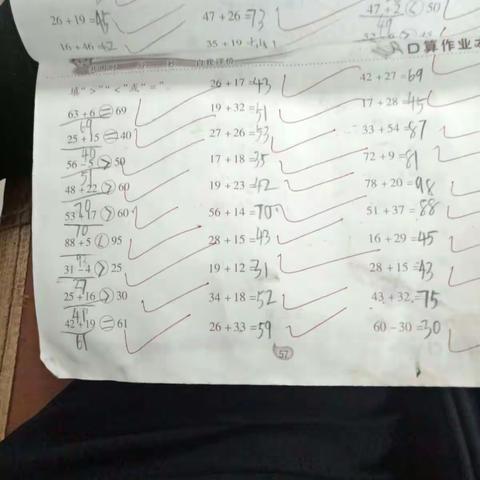 26+19=45 47+26=73 47+2<50
49
16+46=62 35+19
口算作业本
填“>”“<”或“=”。 26+17=43 42+27=69
63+6=69 19+32=51 17+28=45
69
25+15=40 27+26=53 33+54=87
40
56-5>50 17+18=35 72+9=81
51
48+22>60 19+23=42 78+20=98
70
53+17>60 56+14=70 51+37=88
70
88+5<95 28+15=43 16+29=45
93
31-4>25 19+12=31 28+15=43
27
25+16>30 34+18=52 43+32=75
41
42+19=61 26+33=59 60-30=30
61
57